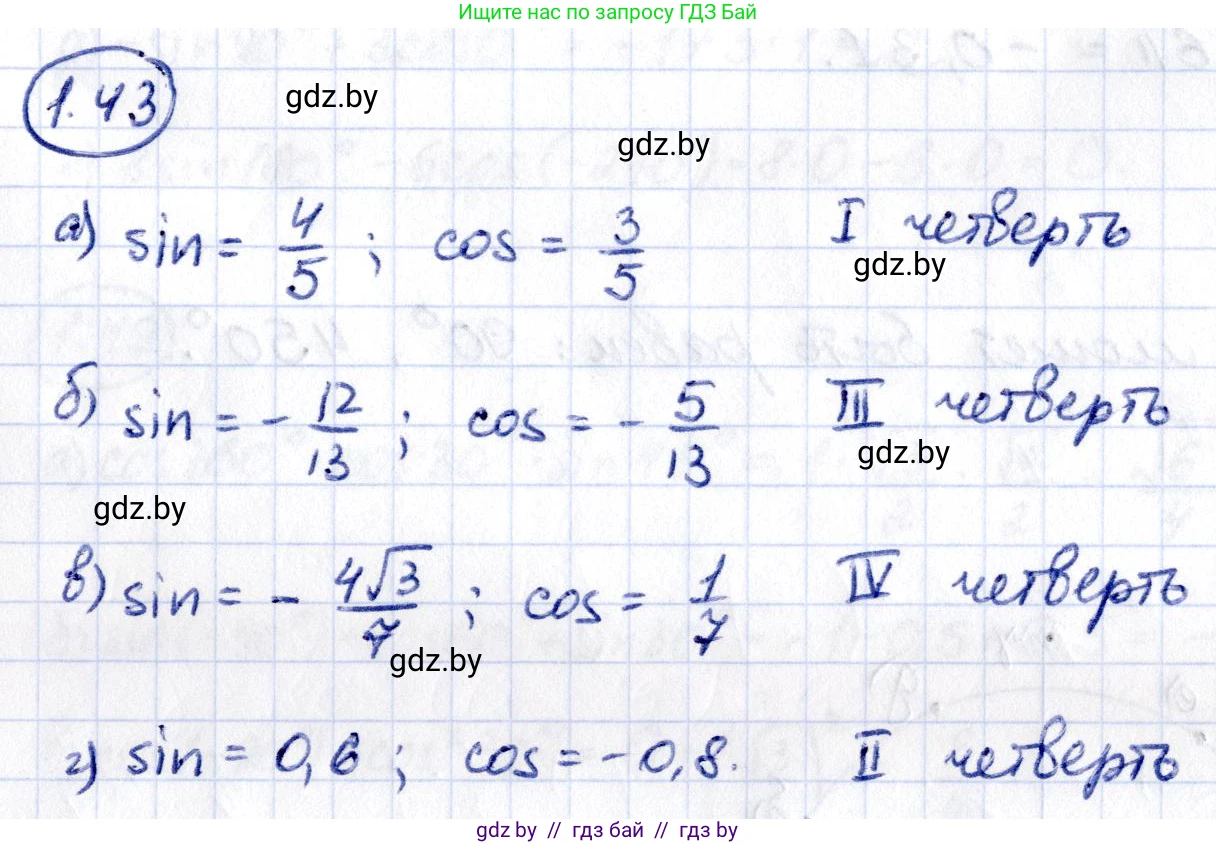 Ищите нас по запросу ГДЗ Бай
1.43
gdz.by
gdz.by
а) sin = 4/5 ; cos = 3/5 I четверть
gdz.by
б) sin = - 12/13 ; cos = - 5/13 III четверть
gdz.by
gdz.by
в) sin = - 4√3/7 ; cos = 1/7 IV четверть
gdz.by
г) sin = 0,6 ; cos = -0,8. II четверть
gdz.by // гдз бай // гдз by